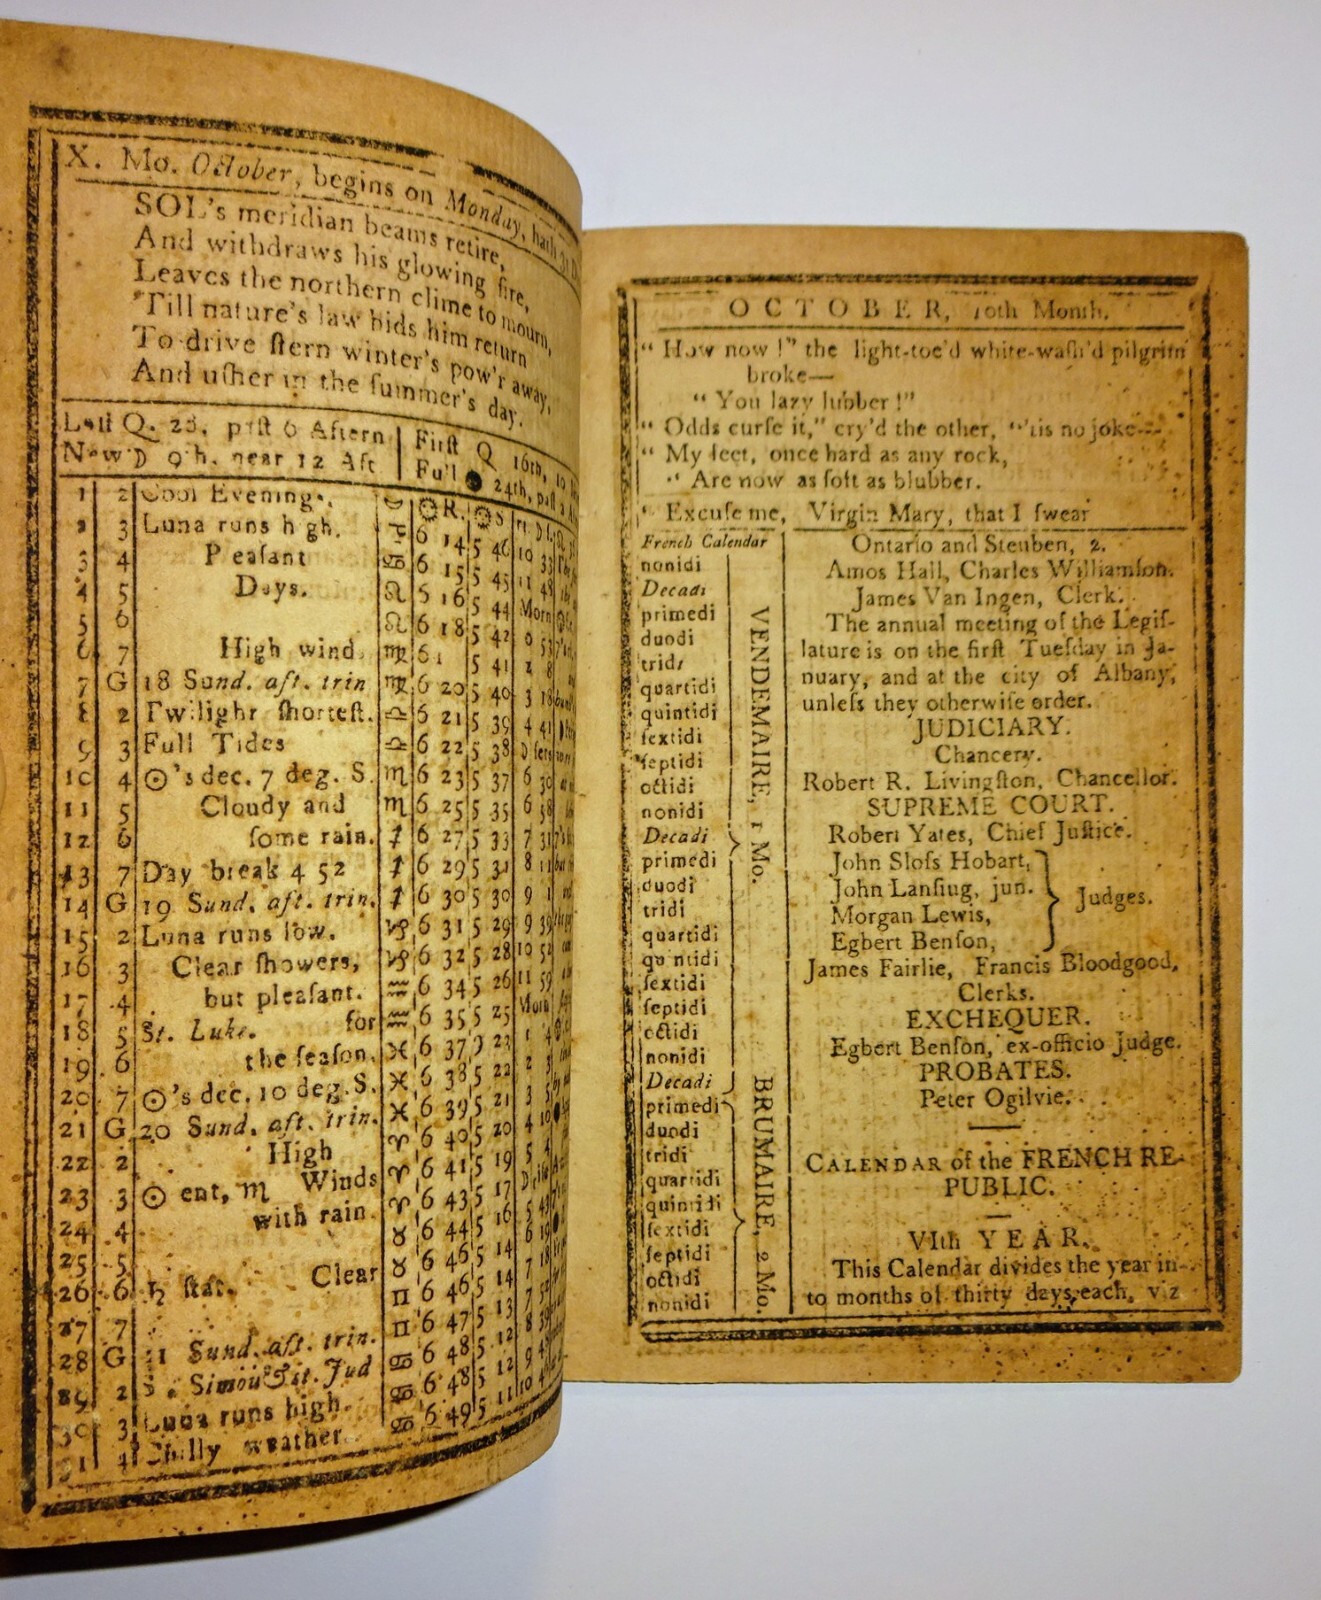 X. Mo. October, begins on Monday, hath 31 D
SOL's meridian beams retire,
And withdraws his glowing fire,
Leaves the northern clime to mourn,
'Till nature's law bids him return
To drive ſtern winter's pow'r away,
And uſher in the ſummer's day.
Laſt Q. 23, paſt 6 Aftern
New D 9 h. near 12 Aft
Firſt Q 16th, 10
Full ● 24th, paſt
☼ R. ☼ S
1 2 Cool Evenings. 6 14 5 46 10 33
2 3 Luna runs high. ♋ 6 15 5 45 11 48
3 4 Pleaſant ♌ 5 16 5 44 Morn
4 5 Days. ♌ 6 18 5 42 0 53
5 6 ♍ 6 1 5 41
6 7 High wind. ♍ 6 20 5 40 3 18
7 G 18 Sund. aft. trin ♎ 6 21 5 39 4 41
8 2 Twilight ſhorteſt. ♎ 6 22 5 38 D ſets
9 3 Full Tides ♏ 6 23 5 37 6 30
10 4 ☉'s dec. 7 deg. S. ♏ 6 25 5 35 6 58
11 5 Cloudy and ♐ 6 27 5 33 7 31
12 6 ſome rain. ♐ 6 29 5 31 8 11
13 7 Day break 4 52 ♐ 6 30 5 30 9 1
14 G 19 Sund. aft. trin. ♑ 6 31 5 29 9 39
15 2 Luna runs low. ♑ 6 32 5 28 10 52
16 3 Clear ſhowers, ♒ 6 34 5 26 11 59
17 4 but pleaſant. ♒ 6 35 5 25 Morn
18 5 St. Luke. for ♓ 6 37 5 23 1 4
19 6 the ſeaſon. ♓ 6 38 5 22 2
20 7 ☉'s dec. 10 deg. S. ♓ 6 39 5 21 3 5
21 G 20 Sund. aft. trin. ♈ 6 40 5 20 4 10
22 2 High ♈ 6 41 5 19 5 4
23 3 ☉ ent, ♏ Winds ♈ 6 43 5 17
24 4 with rain ♉ 6 44 5 16 5 43
25 5 ♉ 6 46 5 14 6 19
26 6 ♄ ſtat. Clear ♊ 6 46 5 14 7
27 7 ♊ 6 47 5 13 7 52
28 G 21 Sund. aft. trin. ♋ 6 48 5 12 8 39
29 2 Simon & ſt. Jud ♋ 6 48 5 12 9
30 3 Luna runs high. ♋ 6 49 5 11 10
31 4 Chilly weather
OCTOBER, 10th Month.
“ How now !” the light-toe'd white-waſh'd pilgrim
broke—
“ You lazy lubber !”
“ Odds curſe it,” cry'd the other, “'tis no joke---
“ My feet, once hard as any rock,
“ Are now as ſoft as blubber.
“ Excuſe me, Virgin Mary, that I ſwear
French Calendar
nonidi
Decadi
primedi
duodi
tridi
quartidi
quintidi
ſextidi
ſeptidi
octidi
nonidi
Decadi
primedi
duodi
tridi
quartidi
quintidi
ſextidi
ſeptidi
octidi
nonidi
Decadi
primedi
duodi
tridi
quartidi
quintidi
ſextidi
ſeptidi
octidi
nonidi
VENDEMAIRE, 1 Mo.
BRUMAIRE, 2 Mo.
Ontario and Steuben, 2.
Amos Hall, Charles Williamſon.
James Van Ingen, Clerk.
The annual meeting of the Legiſ-
lature is on the firſt Tueſday in Ja-
nuary, and at the city of Albany,
unleſs they otherwiſe order.
JUDICIARY.
Chancery.
Robert R. Livingſton, Chancellor.
SUPREME COURT.
Robert Yates, Chief Juſtice.
John Sloſs Hobart,
John Lanſing, jun.
Morgan Lewis,
Egbert Benſon,
Judges.
James Fairlie, Francis Bloodgood,
Clerks.
EXCHEQUER.
Egbert Benſon, ex-officio Judge.
PROBATES.
Peter Ogilvie.
CALENDAR of the FRENCH RE-
PUBLIC.
VIth YEAR.
This Calendar divides the year in-
to months of thirty days each, viz